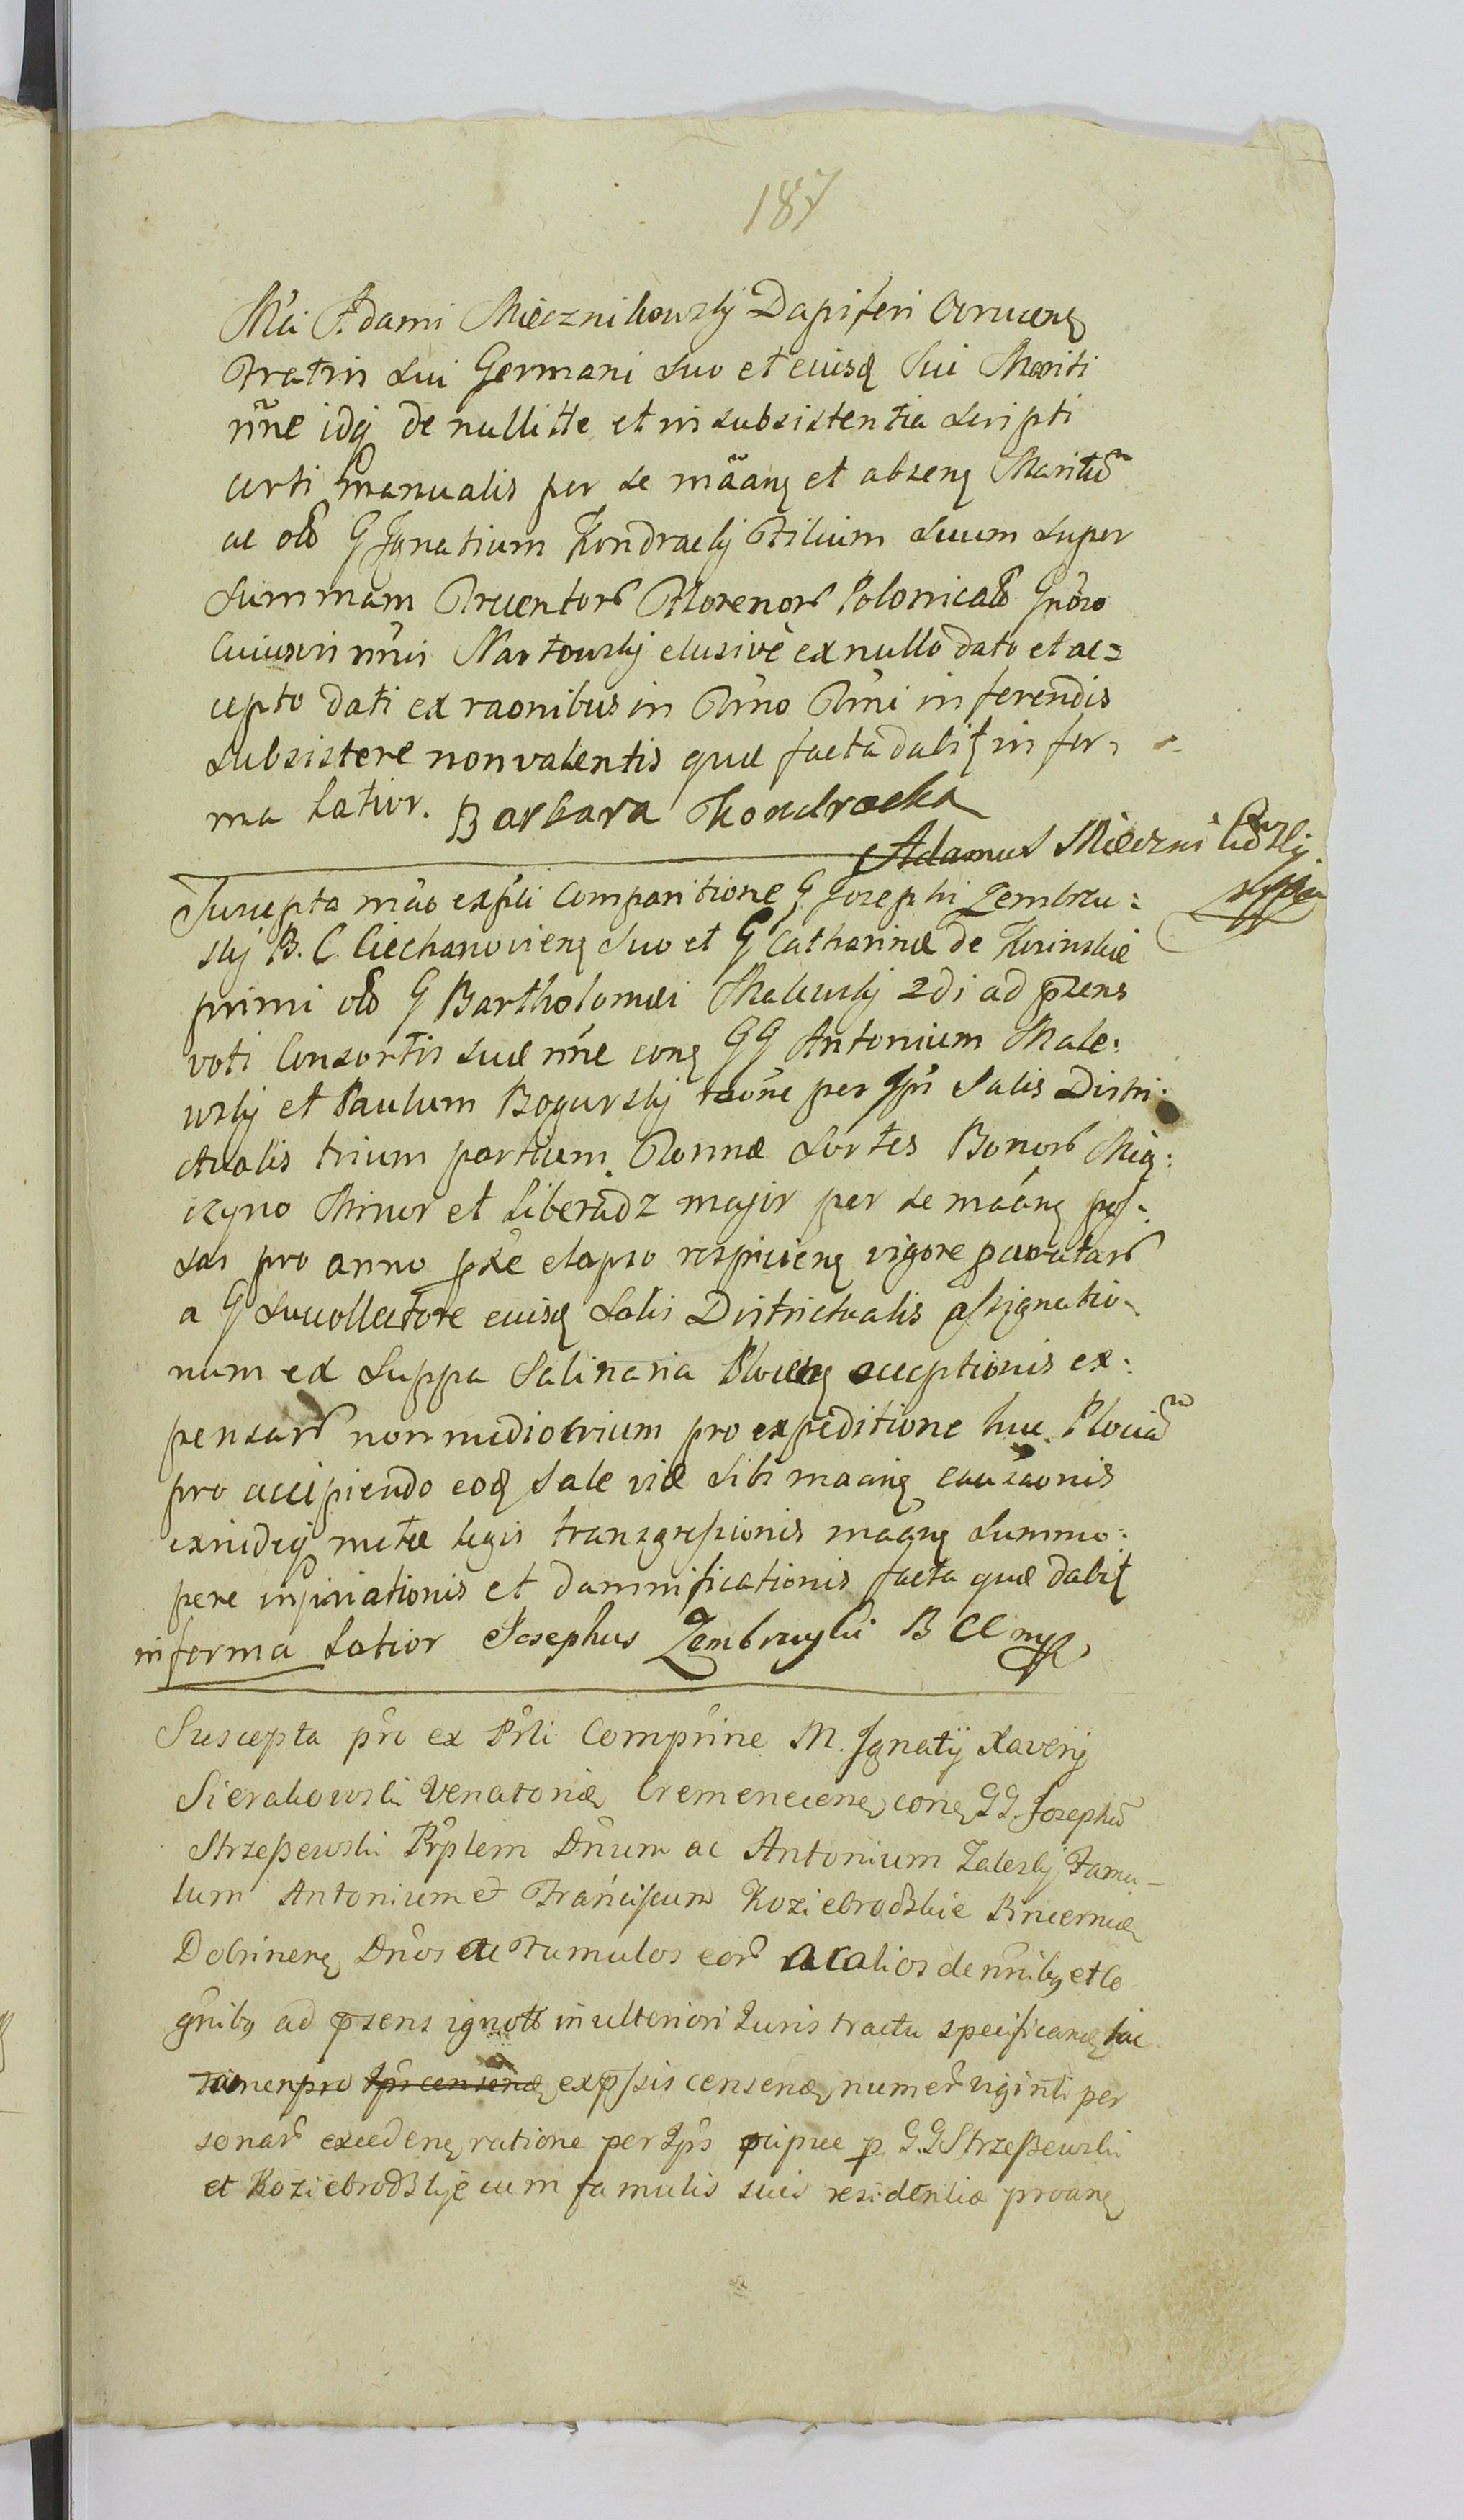 187
Mci Adami Miecznikowsky Dapiferi Owrucens
Fratris sui Germani suo et eiusd sui Mariti
nne idq de nullitte et in subsistentia scripti
certi manualis per se mãans et absens Maritũ
ac olo G Ignatium Kondracky Filium suum super
summam Trecentor Florenor Polonical Gnoso
Nartowsky elusivè ex nullo dato et ac=
cepto dati ex raonibus in Tmno Tmni inferendis
subsistere non valentis quæ facta dabit in for=
ma latior. Barbara Kondracka
Adamus Mieczniko͠wsky
mpp
Suscepta mão expli Comparitione G Josephi Zembrzu:
sky B. C. Ciechanoviens suo et G Catharinæ de
primi olo G Bartholomæi Malewsky 2di ad præsens
voti Consortis suæ nne cons GG Antonium Male:
wsky et Paulum Bogursky raõne per Ips Salis Distri:
ctualis trium partium Tonnæ Sortes Bonor
czyno Minor et Liberadz major per se mãans pos:
sas pro anno pxe elapso respiciens vigore
a G Succollectore eiusd Salis Districtualis assignatio:
num ex Suppa Salinaria Plocens acceptionis ex:
pensar non mediocrium pro expeditione huc Plociã
pro accipiendo eod sale viæ sibi maans causaonis
exindeq metæ legis transgressionis mãans summo:
pere injuriationis et damnificationis facta quæ dabit
in forma latior Josephus Zembrzuski B C C mpp
Suscepta pro ex Prli Comprine M. Ignatij Xaverij
Sierakowski Venatoris Cremenecens cons GG. Josephũ
Strzeßewski Prplem Dnum ac Antonium Zalesky Famu-
lum Antonium et Franciscum Koziebrodzkie Pincernæ
Dobrinens Dnos ac Famulos eor ac alios de nnibus et co
gnibus ad præsens ignott in ulteriori Juris tractu specificans hic
tamen pro Ips censens expssis censens numer viginti per
sonar excedens ratione per Ips p G.G Strzeßewski
et Koziebrodzkije cum famulis suis residentiæ